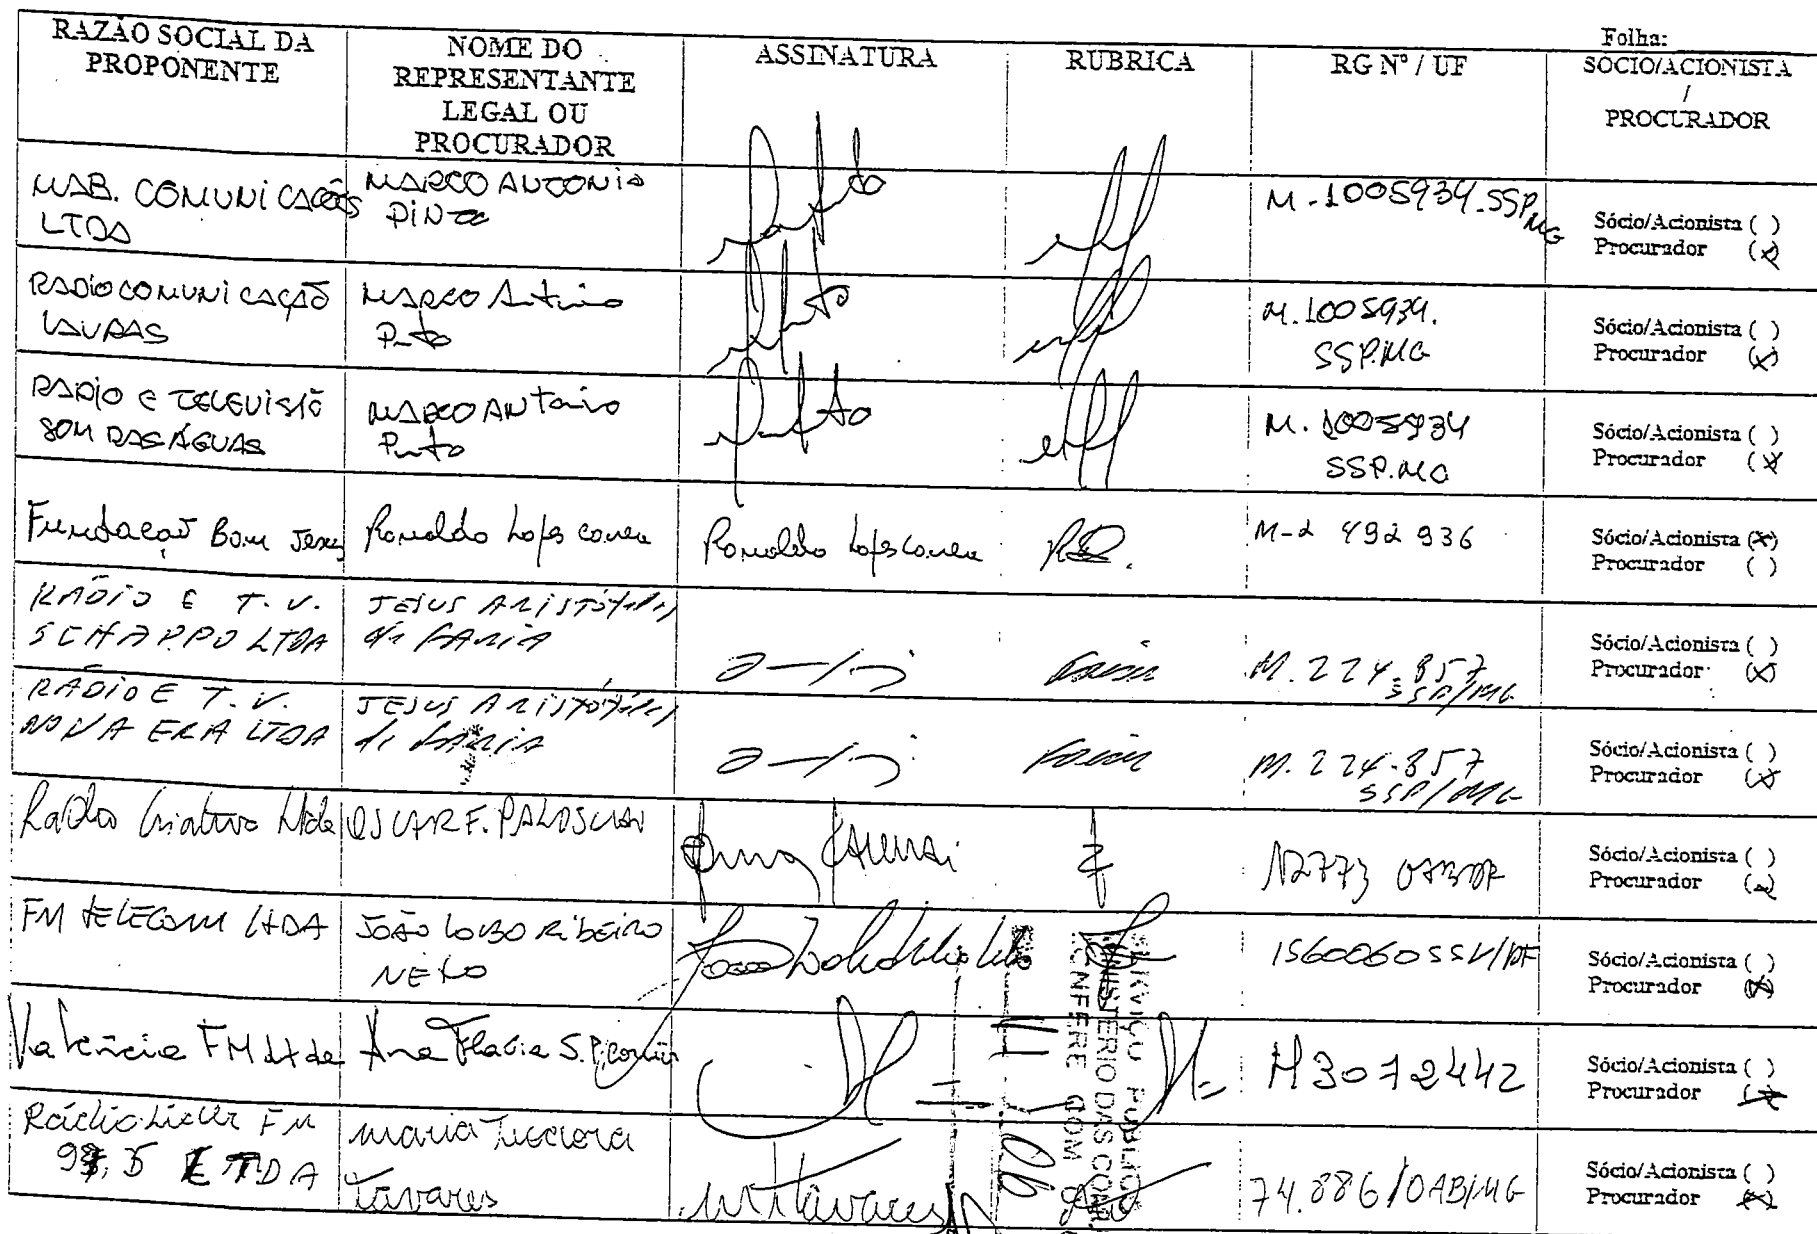 Folha:
RAZÃO SOCIAL DA PROPONENTE
NOME DO REPRESENTANTE LEGAL OU PROCURADOR
ASSINATURA
RUBRICA
RG Nº / UF
SÓCIO/ACIONISTA / PROCURADOR
MAB. COMUNICAÇÕES LTDA
MARCO ANTONIO PINTO
M-1005934-SSP MG
Sócio/Acionista ( )
Procurador (x)
RADIO COMUNICAÇÃO LAVRAS
MARCO Antonio Pinto
M.1005934. SSP.MG
Sócio/Acionista ( )
Procurador (x)
RADIO E TELEVISÃO SOM DAS ÁGUAS
MARCO ANTONIO Pinto
M.1005934 SSP.MG
Sócio/Acionista ( )
Procurador (x)
Fundação Bom Jesus
Ronaldo Lopes Correa
Ronaldo Lopes Correa
M-2 492 936
Sócio/Acionista (x)
Procurador ( )
RÁDIO E T.V. SCHAPPO LTDA
JESUS ARISTÓTELES de FARIA
Faria
M.224.857 SSP/MG
Sócio/Acionista ( )
Procurador (x)
RÁDIO E T.V. NOVA ERA LTDA
JESUS ARISTÓTELES de FARIA
Faria
M.224.857 SSP/MG
Sócio/Acionista ( )
Procurador (x)
Radio Criativa Ltda
OSCAR F.
12773 OAB/DF
Sócio/Acionista ( )
Procurador (x)
FM TELECOM LTDA
JOÃO LOBO RIBEIRO NETO
1560060 SSP/DF
Sócio/Acionista ( )
Procurador (x)
Valência FM Ltda
Ana Flavia S. P.
M3072442
Sócio/Acionista ( )
Procurador (x)
Rádio Lider FM LTDA
maria Tavares
mtTavares
74.886/OAB/MG
Sócio/Acionista ( )
Procurador (x)
SERVIÇO PÚBLICO
MINISTÉRIO DAS COM
CONFERE COM O